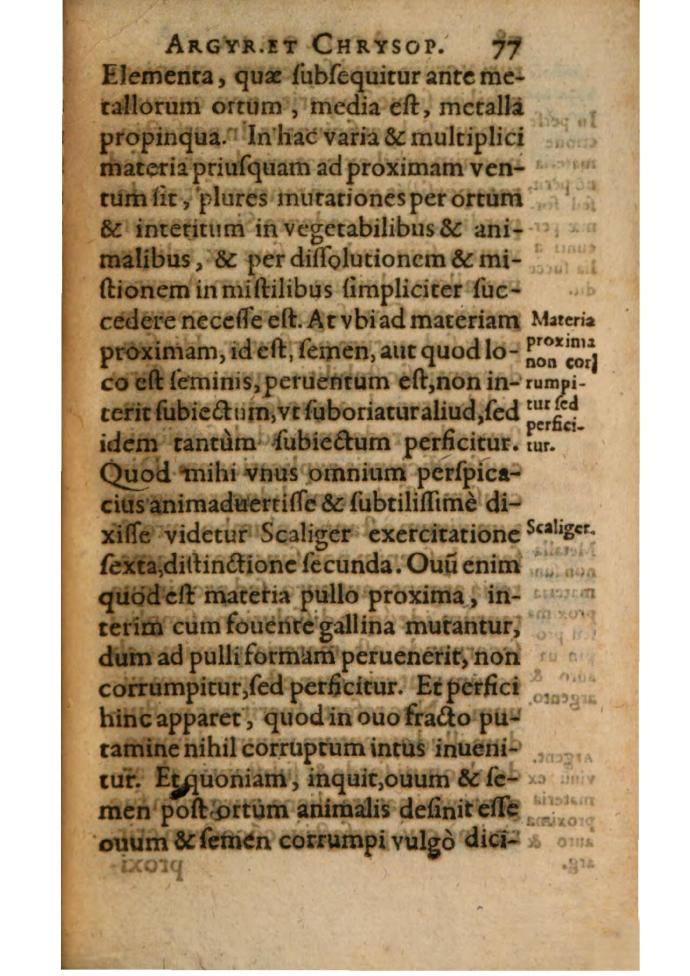 ARGYR. ET CHRYSOP. 77
Elementa, quæ ſubſequitur ante me-
tallorum ortum, media eſt, metalla
propinqua. In hac varia & multiplici
materia priuſquam ad proximam ven-
tum ſit, plures mutationes per ortum
& interitum in vegetabilibus & ani-
malibus, & per diſſolutionem & mi-
ſtionem in miſtilibus ſimpliciter ſuc-
cedere neceſſe eſt. At vbi ad materiam
proximam, id eſt, ſemen, aut quod lo-
co eſt ſeminis, peruentum eſt, non in-
terit ſubiectum, vt ſuboriatur aliud, ſed
idem tantùm ſubiectum perficitur.
Quod mihi vnus omnium perſpica-
cius animaduertiſſe & ſubtiliſſimè di-
xiſſe videtur Scaliger exercitatione
ſexta, diſtinctione ſecunda. Ouū enim
quod eſt materia pullo proxima, in-
terim cum fouente gallina mutantur,
dum ad pulli formam peruenerit, non
corrumpitur, ſed perficitur. Et perfici
hinc apparet, quod in ouo fracto pu-
tamine nihil corruptum intus inueni-
tur. Et quoniam, inquit, ouum & ſe-
men poſt ortum animalis deſinit eſſe
ouum & ſemen corrumpi vulgò dici-
Materia
proxima
non cor
rumpi-
tur ſed
perfici-
tur.
Scaliger.